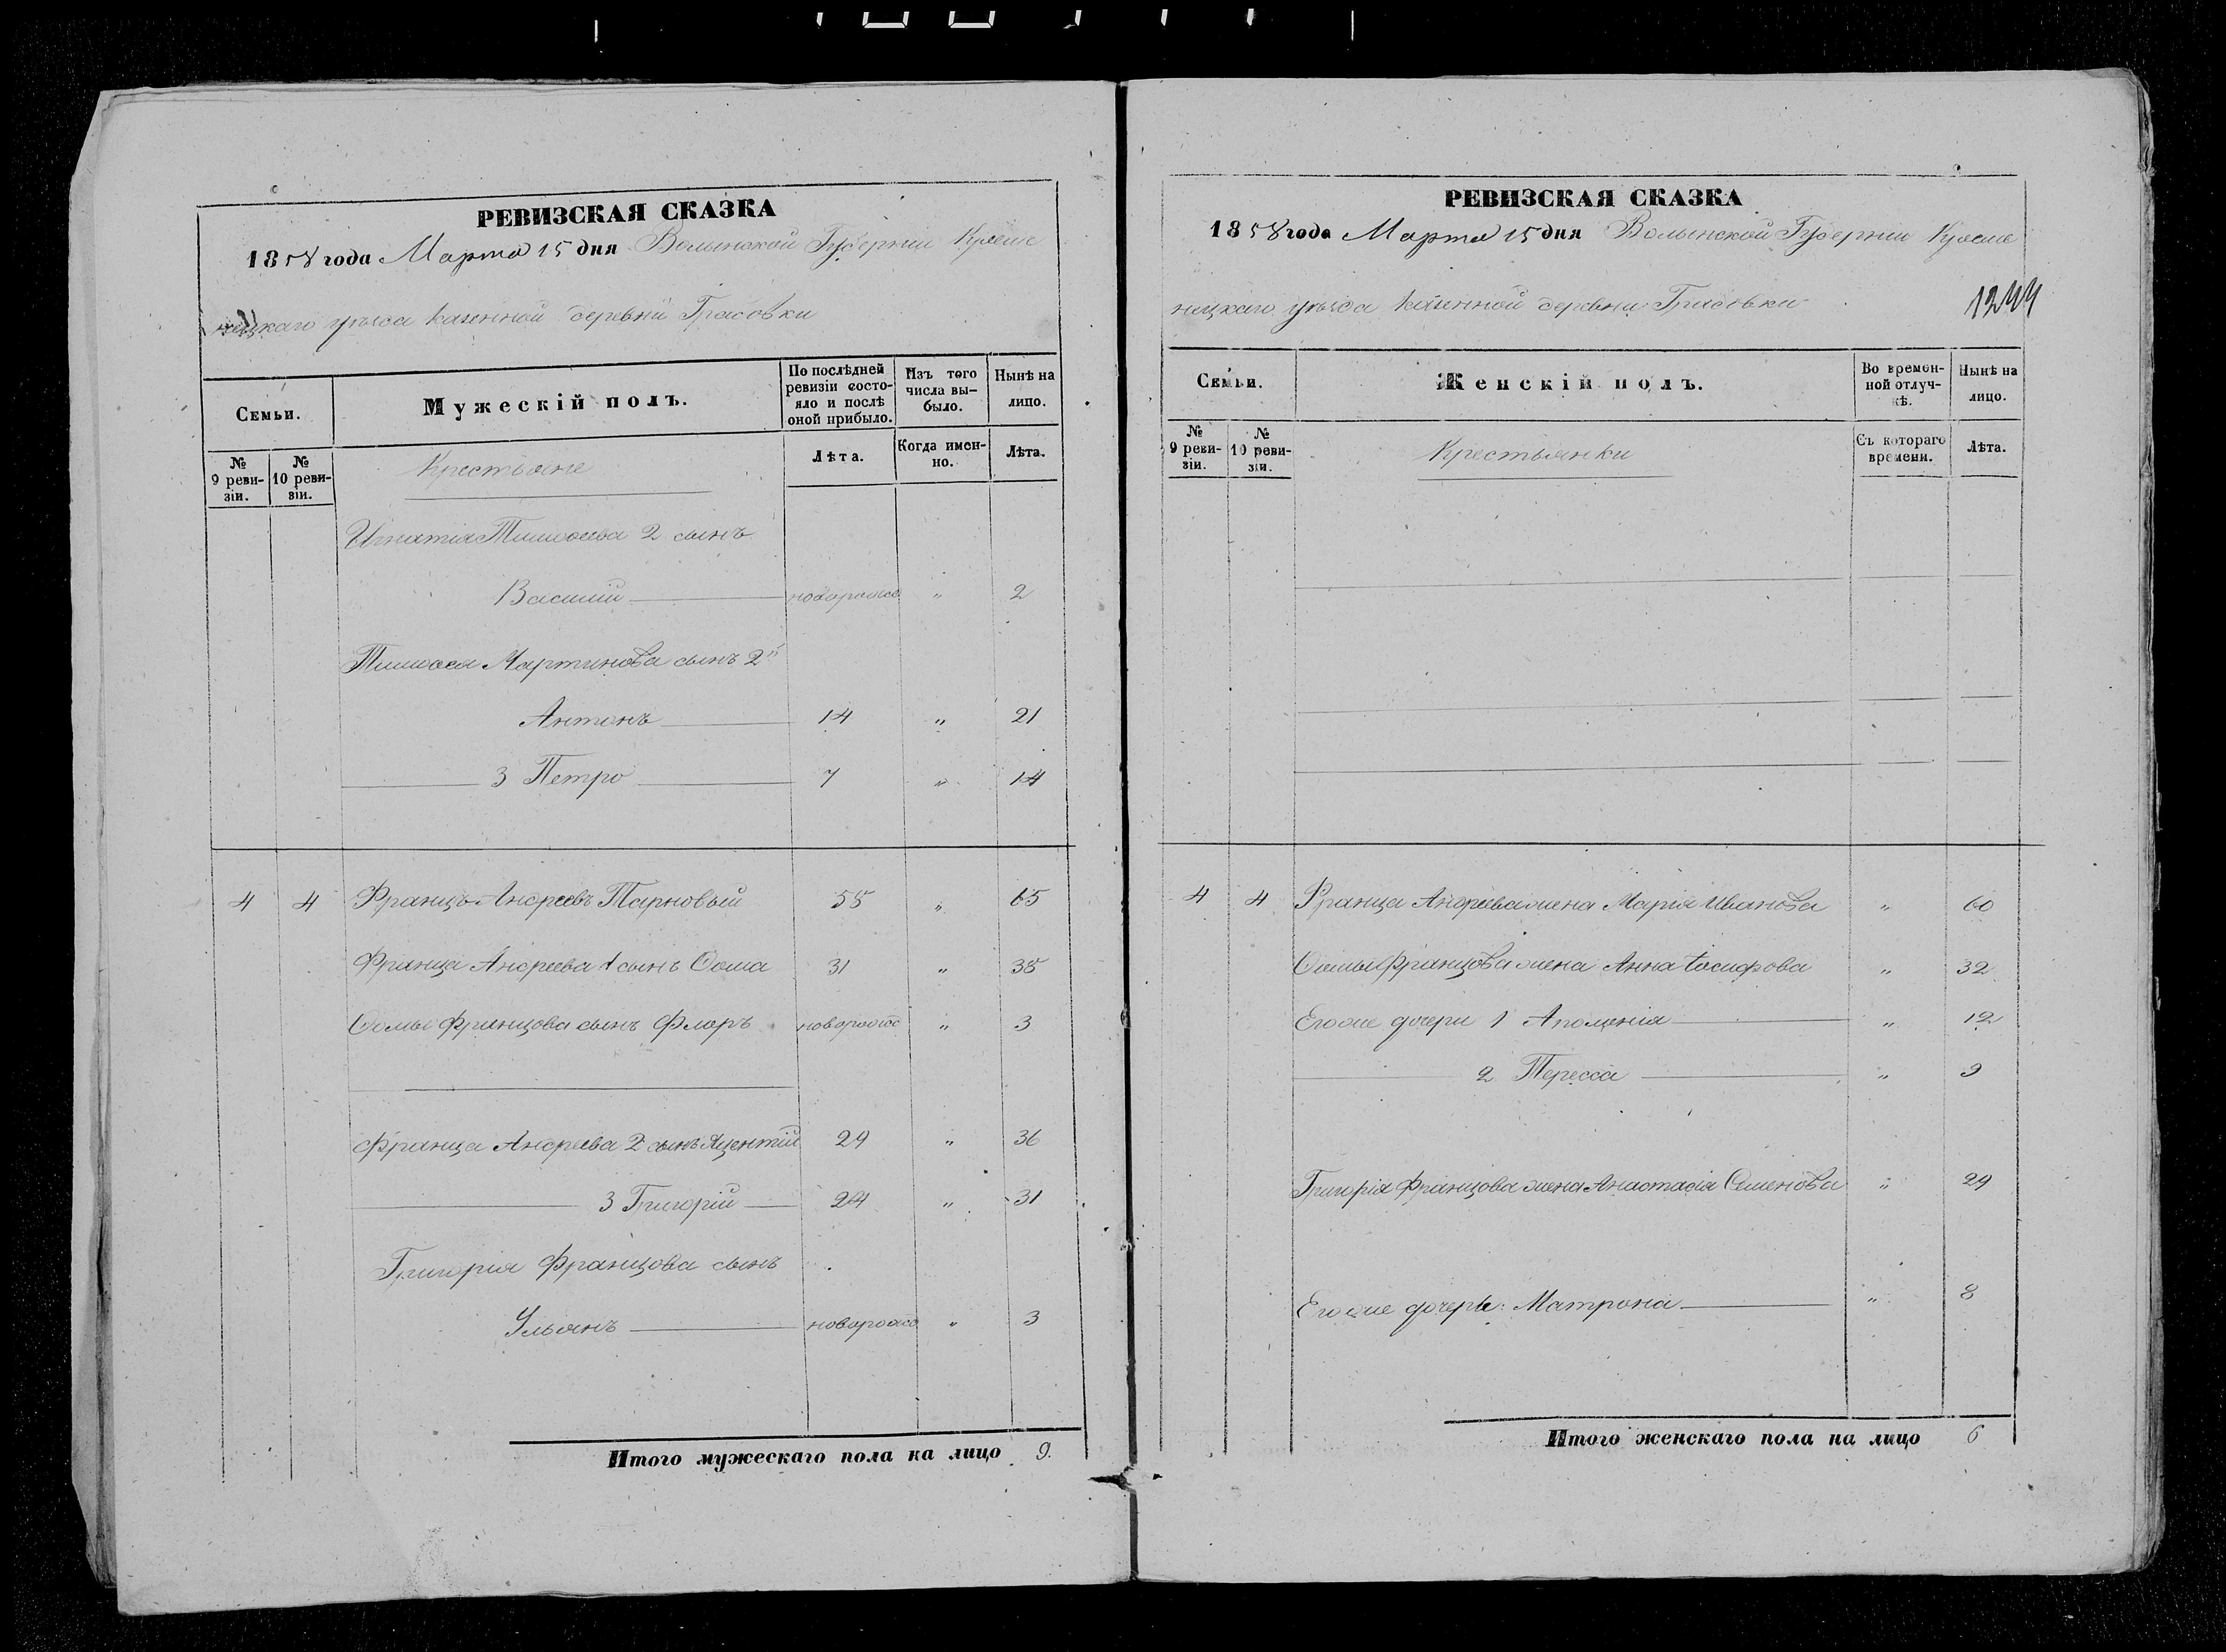 РЕВИЗСКАЯ СКАЗКА
1858 года Марта 15 дня Волынской Губернии Креме
нецкаго уѣзда казенной деревни Грасовки
Семьи.
Мужескій полъ.
По послѣдней ревизіи состо-
яло и послѣ оной прибыло.
Изъ того числа вы-
было.
Нынѣ на лицо.
№ 9 реви-
зіи.
№ 10 реви-
зіи.
Крестьяне
Лѣта.
Когда имен-
но.
Лѣта.
Игнатія Тимоѳеева 2 сынъ
Василій новорожд " 2
Тимоѳея Мартинова сынъ 2й
Антонъ 14 " 21
3 Петро 7 " 14
4 4 Францъ Андреевъ Тарновый 55 " 65
Франца Андреева 1 сынъ Ѳома 31 " 38
Ѳомы Францова сынъ Флоръ новорожд " 3
Франца Андреева 2 сынъ Яцентій 29 " 36
3 Григорій 24 " 31
Григорія Францова сынъ
Ульянъ новорожд " 3
Итого мужескаго пола на лицо 9.
РЕВИЗСКАЯ СКАЗКА
1858 года Марта 15 дня Волынской Губернии Креме
нецкаго уѣзда казенной деревни Грасовки
1244
Семьи.
Женскій полъ.
Во времен-
ной отлуч-
кѣ.
Нынѣ на лицо.
№ 9 реви-
зіи.
№ 10 реви-
зіи.
Крестьянки
Съ котораго времени.
Лѣта.
4 4 Франца Андреева жена Марія Иванова " 60
Ѳомы Францова жена Анна Іосифова " 32
Егоже дочери 1 Аполенія " 12
2 Тересса " 9
Григорія Францова жена Анастасія Семенова " 29
Егоже дочерь: Матрона " 8
Итого женскаго пола на лицо 6